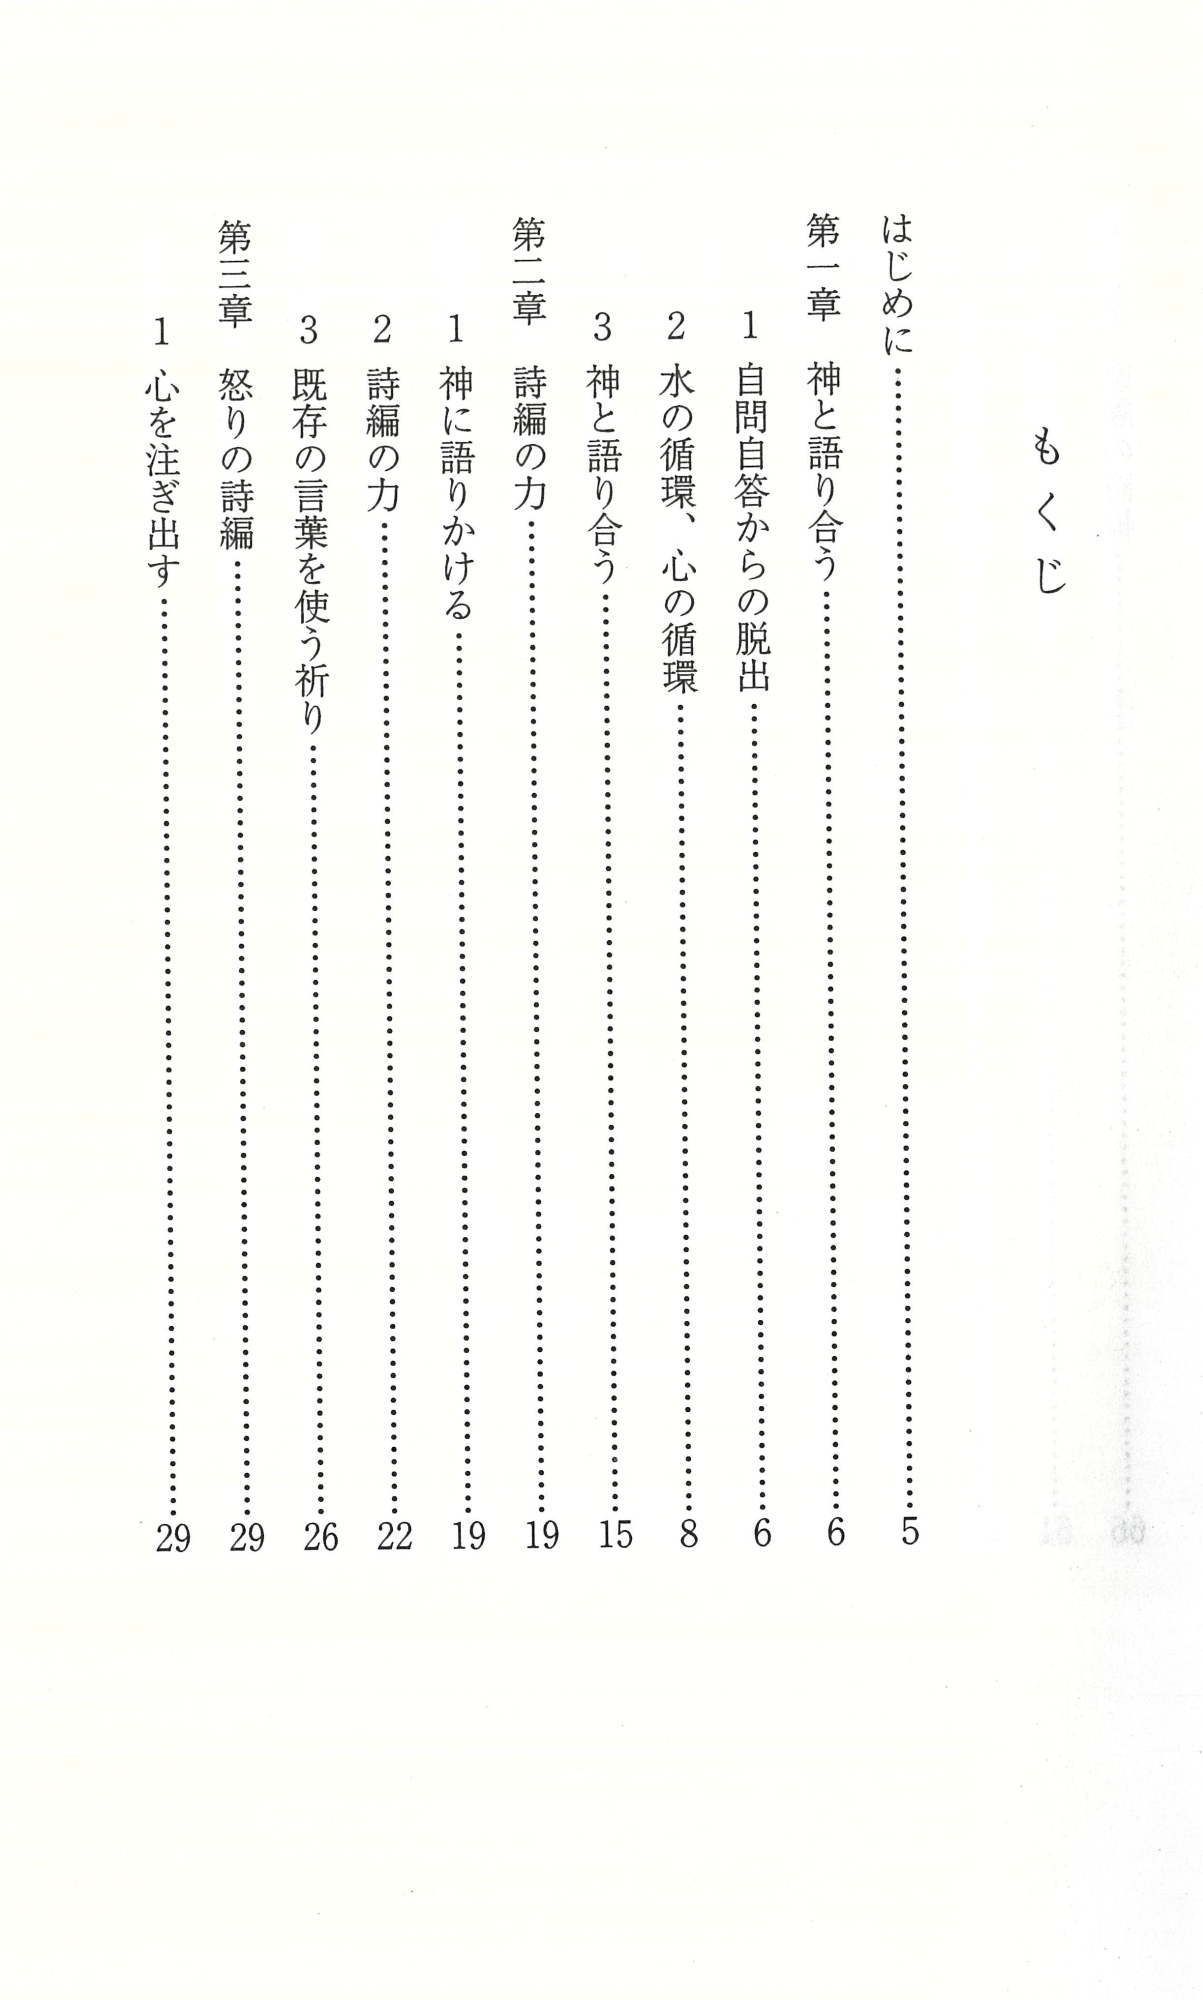 もくじ
はじめに……………………5
第一章　神と語り合う……………………6
1　自問自答からの脱出……………………6
2　水の循環、心の循環……………………8
3　神と語り合う……………………15
第二章　詩編の力……………………19
1　神に語りかける……………………19
2　詩編の力……………………22
3　既存の言葉を使う祈り……………………26
第三章　怒りの詩編……………………29
1　心を注ぎ出す……………………29